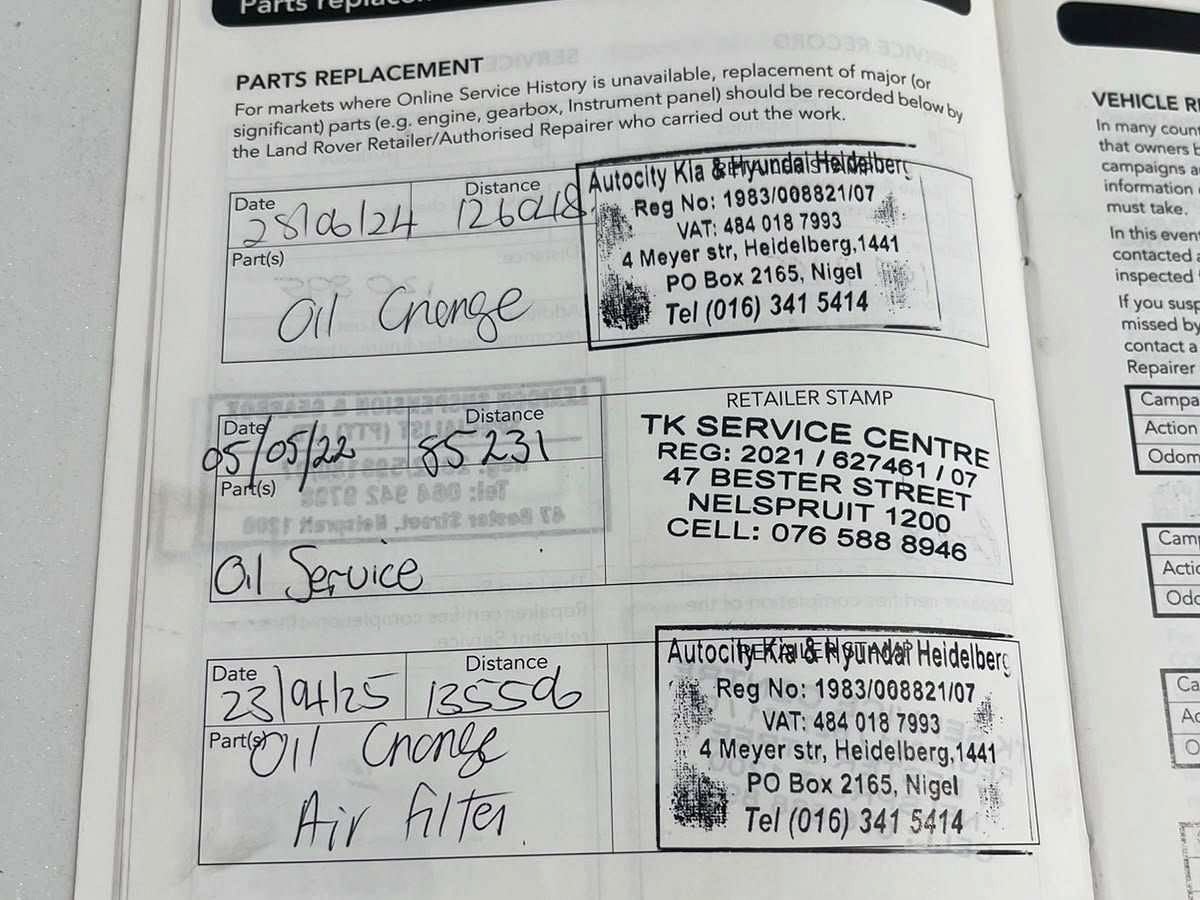 Parts replacem
PARTS REPLACEMENT
For markets where Online Service History is unavailable, replacement of major (or
significant) parts (e.g. engine, gearbox, Instrument panel) should be recorded below by
the Land Rover Retailer/Authorised Repairer who carried out the work.
Date
28/06/24
Distance
126048
Part(s)
Oil Change
Autocity Kia & Hyundai Heidelberg
Reg No: 1983/008821/07
VAT: 484 018 7993
4 Meyer str, Heidelberg,1441
PO Box 2165, Nigel
Tel (016) 341 5414
Date
05/05/22
Distance
85231
Part(s)
Oil Service
RETAILER STAMP
TK SERVICE CENTRE
REG: 2021 / 627461 / 07
47 BESTER STREET
NELSPRUIT 1200
CELL: 076 588 8946
Date
23/04/25
Distance
135506
Part(s)
Oil Change
Air filter
RETAILER STAMP
Autocity Kia & Hyundai Heidelberg
Reg No: 1983/008821/07
VAT: 484 018 7993
4 Meyer str, Heidelberg,1441
PO Box 2165, Nigel
Tel (016) 341 5414
VEHICLE R
In many coun
that owners b
campaigns a
information
must take.
In this even
contacted a
inspected
If you susp
missed by
contact a
Repairer
Campa
Action
Odom
Camp
Actic
Odo
Ca
Ac
O